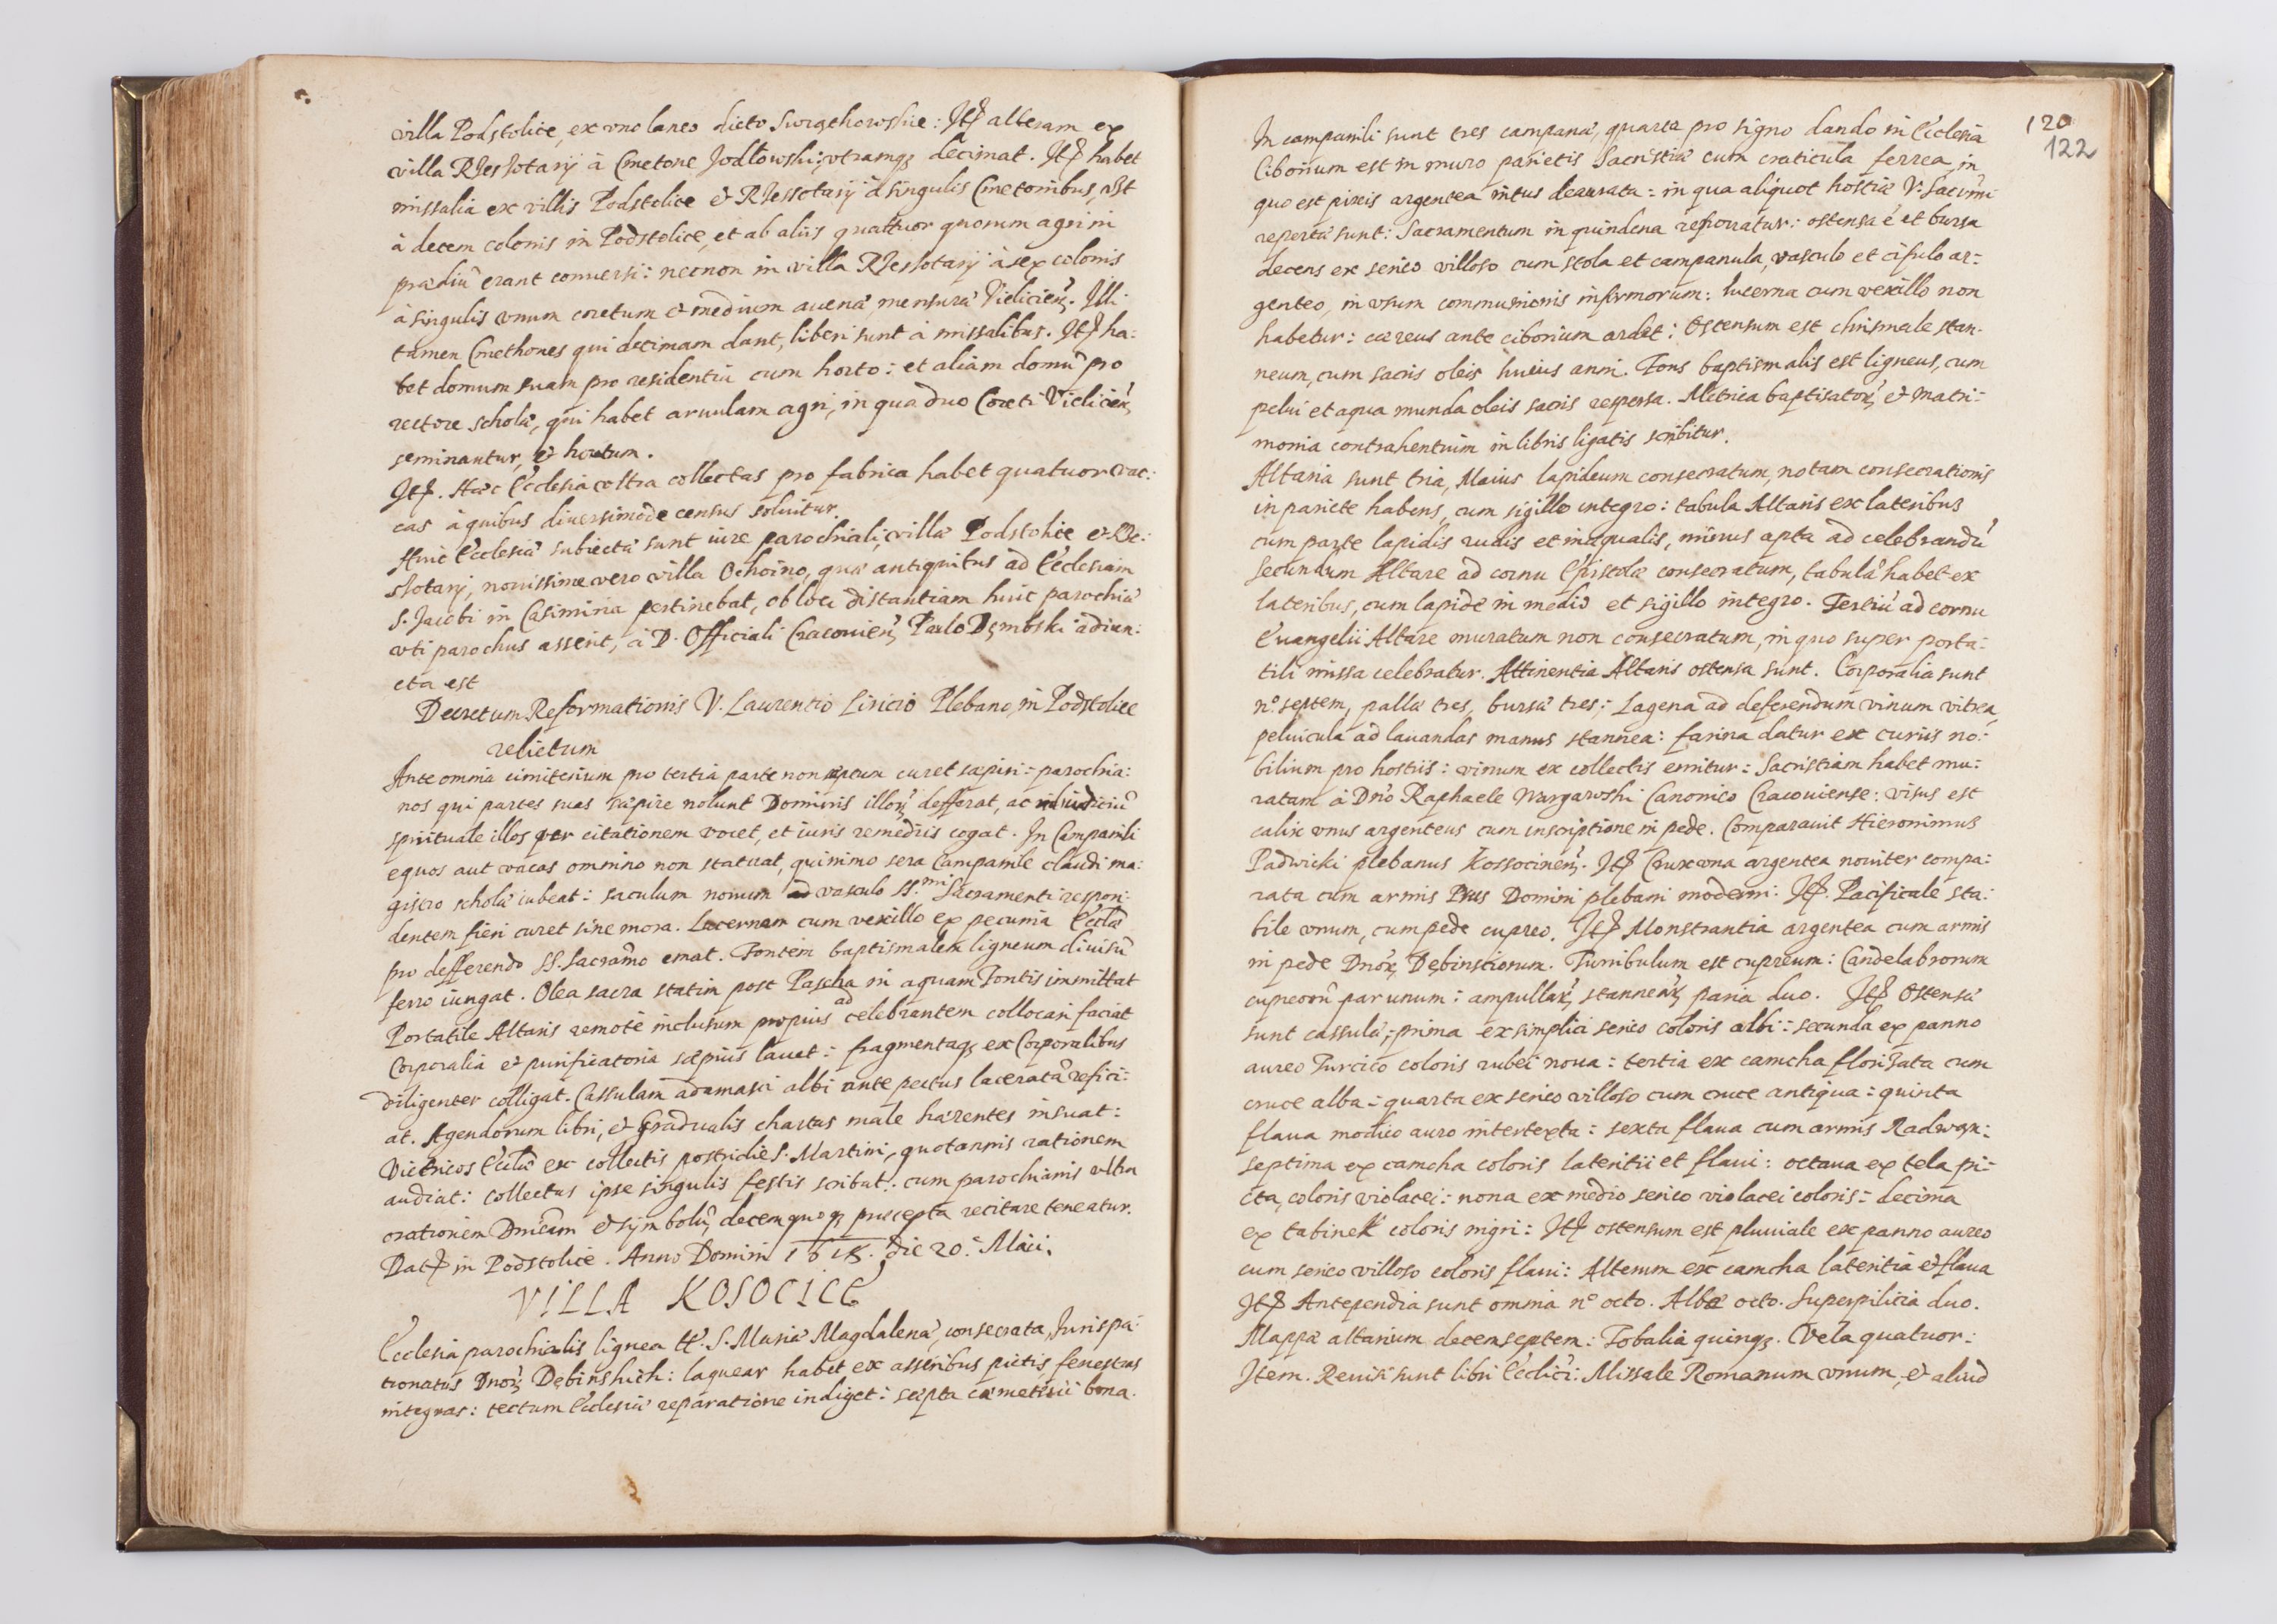 villa Podstolice, ex uno laneo dicto Swigthowskie: Itē alteram ex
villa Rzeszotary à Cmetone Jodłowski; utramq; decimat. Itē habet
missalia ex villis Podstolice & Rzessotary à singulis Cmetonibus,
à decem colonis in Podstolice, et ab aliis quattuor quorum agri in
prædiū erant conuersi: necnon in villa Rzessotary à sex colonis
à singulis unum coretum & medium auenæ, mensuræ Vielicień. Illi
tamen Cmethones qui decimam dant, liberi sunt à missalibus. Itē ha:
bet domum suam pro residentia cum horto: et aliam domū pro
rectore scholæ, qui habet aruulam agri, in qua duo Coreti Vielicień
seminantur, & hortum.
Itē. Hæc Ecclesia vltra collectas pro fabrica habet quatuor vac:
cas à quibus diuersimode census soluitur.
Huic Ecclesiæ subiectæ sunt iure parochiali, villæ Podstolice & Rze:
szotary, nouissime vero villa Ochoino, quæ antiquitus ad Ecclesiam
S. Jacobi in Casimiria pertinebat, ob loci distantiam huic parochiæ
vti parochus asserit, à D. Officiali Cracouień Paulo Dębski adiun:
cta est
Decretum Reformationis V. Laurentio Liricio Plebano, in Podstolice
relictum
Ante omnia cimiterium pro tertia parte non septum curet sæpiri: parochia:
nos qui partes suas sæpire nolunt Dominis illorū defferat, ac iudiciū
spirituale illos per citationem vocet, et iuris remediis cogat. In Campanili
equos aut vacas omnino non statuat, quinimo sera Campanile claudi ma:
gistro scholæ iubeat: saculum nouum ad vasculo SS.mi Sacramenti respon:
dentem fieri curet sine mora. Lucernam cum vexillo ex pecunia Ecclæ
pro defferendo SS. Sacramō emat. Fontem baptismalem ligneum diuisū
ferro iungat. Olea sacra statim post Pascha in aquam Fontis immittat
Portatile Altaris remote inclusum propius ad celebrantem collocari faciat
Corporalia & purificatoria sæpius lauet: fragmentaq; ex Corporalibus
diligenter colligat. Cassulam adamasci albi ante pectus laceratā refici:
at. Agendorum libri, & Gradualis chartas male hærentes insuat:
Victricos Ecclæ ex collectis postridie S. Martini, quotannis rationem
audiat: collectas ipse singulis festis scribat: cum parochianis vltra
orationem Dnicam & symbolū, decem quoq; præcepta recitare teneatur.
Datē in Podstolice. Anno Domini 1618. die 20. Maii.
VILLA KOSOCICE
Ecclesia parochialis lignea tt. S. Mariæ Magdalenæ, consecrata, Iurispa:
tronatus Dnorū Dębinskich: laquear habet ex asseribus pictis, fenestras
integras: tectum Ecclesiæ reparatione indiget: septa cæmeterii bona.
120
122
In campanili sunt tres campanæ, quarta pro signo dando in Ecclesia
Ciborium est in muro parietis Sacristiæ cum craticula ferrea, in
quo est pixis argentea intus deaurata: in qua aliquot hostiæ V. Sacrmi
repertæ sunt: Sacramentum in quindena renouatur: ostensa ē et bursa
decens ex serico villoso cum stola et campanula, vasculo et cifulo ar:
genteo, in vsum communionis infirmorum: lucerna cum vexillo non
habetur: cæreus ante ciborium ardet: Ostensum est chrismale stan:
neum, cum sacris oleis huius anni. Fons baptismalis est ligneus, cum
pelui et aqua munda oleis sacris respersa. Metrica baptisatorū & matri:
monia contrahentium in libris ligatis scribitur.
Altaria sunt tria, Maius lapideum consecratum, notam consecrationis
in pariete habens, cum sigillo integro: tabula Altaris ex lateribus
cum parte lapidis rudis et inæqualis, minus apta ad celebrandū
Secundum Altare ad cornu Epistolæ consecratum, tabulā habet ex
lateribus, cum lapide in medio et sigillo integro. Tertiū ad cornu
Euangelii Altare muratum non consecratum, in quo super porta:
tili missa celebratur. Attinentia Altaris ostensa sunt. Corporalia sunt
nº septem, pallæ tres, bursæ tres: Lagena ad deferendum vinum vitrea,
peluicula ad lauandas manus stannea: farina datur ex curiis no:
bilium pro hostiis: vinum ex collectis emitur: Sacristiam habet mu:
ratam à Dnō Raphaele Wargawski Canonico Cracouiense: visus est
calix vnus argenteus cum inscriptione in pede. Comparauit Hieronimus
Padwicki plebanus Kossocineń. Itē Crux vna argentea nouiter compa:
rata cum armis Prus Domini plebani moderni. Itē. Pacificale sta:
bile vnum, cum pede cupreo. Itē Monstrantia argentea cum armis
in pede Dnorū Dębinsciorum. Turribulum est cupreum: Candelabrorum
cupreorū par unum: ampullarū stannearū paria duo. Itē Ostensæ
sunt cassulæ; prima ex simplici serico coloris albi: secunda ex panno
aureo Turcico coloris rubei noua: tertia ex camcha florisata cum
cruce alba: quarta ex serico villoso cum cruce antiqua: quinta
flaua modico auro intertexta: sexta flaua cum armis Radwan:
septima ex camcha coloris lateritii et flaui: octaua ex tela pi:
cta, coloris violacei: nona ex medio serico violacei coloris: decima
ex tabinek coloris nigri: Itē ostensum est pluuiale ex panno aureo
cum serico villoso coloris flaui: Alterum ex camcha lateritia & flaua
Itē Antependia sunt omnia nº octo. Albæ octo. Superpilicia duo.
Mappæ altarium decemseptem: Tobalia quinq;. Vela quatuor:
Item. Reuisi sunt libri Ecclici: Missale Romanum vnum, & aliud